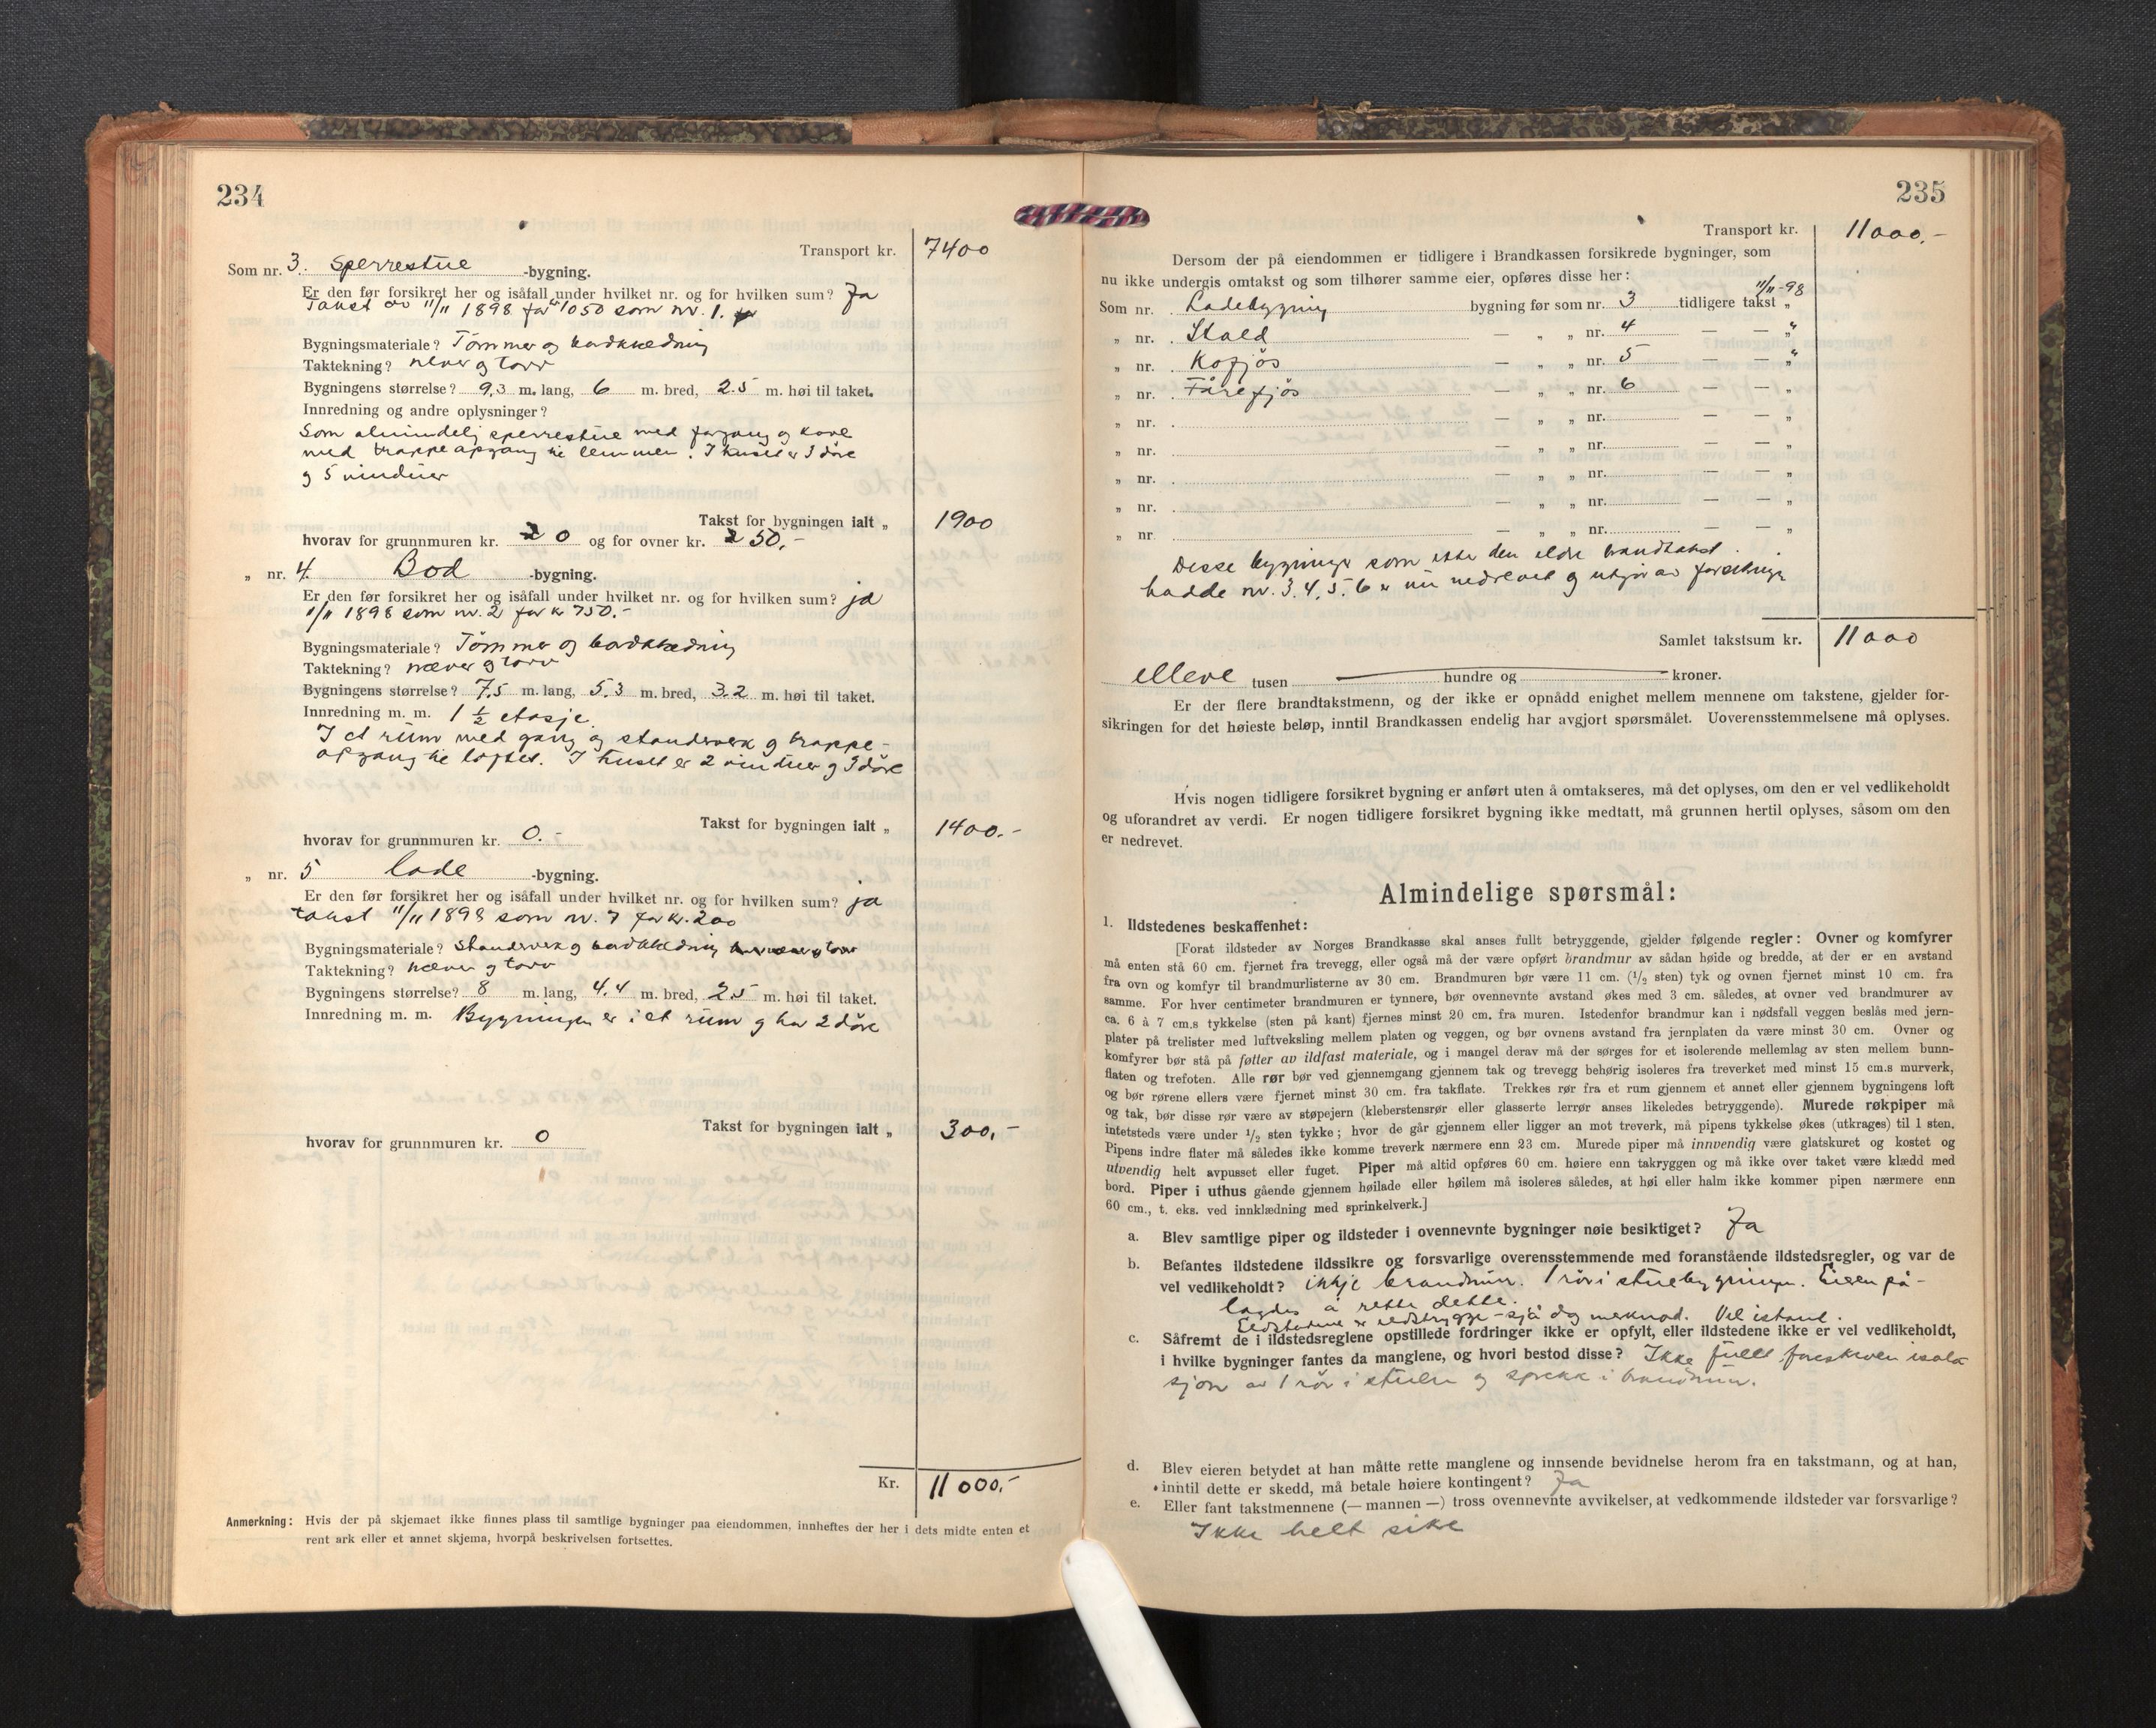 234
Transport kr. 7400
Som nr. 3. Sperrestue -bygning.
Er den før forsikret her og isåfall under hvilket nr. og for hvilken sum? Ja
Takst av 11/11 1898 for kr 1050 som nr. 1.
Bygningsmateriale? Tömmer og bordklædning
Taktekning? never og torv
Bygningens størrelse? 9,3 m. lang, 6 m. bred, 2.5 m. høi til taket.
Innredning og andre oplysninger?
Som almindelig sperrestue med forgang og kove
med trappeopgang til lemmen. I huset er 3 döre
og 5 vinduer
Takst for bygningen ialt „ 1900
hvorav for grunnmuren kr. 20 og for ovner kr. 250,-
„ nr. 4. Bod -bygning.
Er den før forsikret her og isåfall under hvilket nr. og for hvilken sum? ja
11/11 1898 som nr. 2 for kr 750.-
Bygningsmateriale? Tömmer og bordklædning
Taktekning? næver og torv
Bygningens størrelse? 7,5 m. lang, 5.3 m. bred, 3.2 m. høi til taket.
Innredning m. m. 1 ½ etasje.
I et rum med gang og standerverk og trappe-
opgang til loftet. I huset er 2 vinduer og 3 döre
Takst for bygningen ialt „ 1400.-
hvorav for grunnmuren kr. 0.-
„ nr. 5 Lade -bygning.
Er den før forsikret her og isåfall under hvilket nr. og for hvilken sum? ja
takst 11/11 1898 som nr. 7 for kr. 200
Bygningsmateriale? Standerverk og bordklædning
Taktekning? næver og torv
Bygningens størrelse? 8 m. lang, 4.4 m. bred, 2.5 m. høi til taket.
Innredning m. m. Bygningen er i et rum og har 2 döre
Takst for bygningen ialt „ 300,-
hvorav for grunnmuren kr. 0
Kr. 11000,-
Anmerkning: Hvis der på skjemaet ikke finnes plass til samtlige bygninger paa eiendommen, innheftes der her i dets midte enten et
rent ark eller et annet skjema, hvorpå beskrivelsen fortsettes.
235
Transport kr. 11000,-
Dersom der på eiendommen er tidligere i Brandkassen forsikrede bygninger, som
nu ikke undergis omtakst og som tilhører samme eier, opføres disse her:
11/11-98
Som nr. Ladebygning bygning før som nr. 3 tidligere takst „
„ nr. Stald — „ „ nr. 4 — — „
„ nr. Kofjös — „ „ nr. 5 — — „
„ nr. Fårefjös — „ „ nr. 6 — — „
„ nr. — „ „ nr. — — „
„ nr. — „ „ nr. — — „
„ nr. — „ „ nr. — — „
„ nr. — „ „ nr. — — „
„ nr — „ „ nr. — — „
Disse bygninger som etter den eldre brandtakst
hadde nr. 3. 4. 5. 6 er nu nedrevet og utgår av forsikringa
Samlet takstsum kr. 11000
elleve tusen — hundre og — kroner.
Er der flere brandtakstmenn, og der ikke er opnådd enighet mellem mennene om takstene, gjelder for-
sikringen for det høieste beløp, inntil Brandkassen endelig har avgjort spørsmålet. Uoverensstemmelsene må oplyses.
Hvis nogen tidligere forsikret bygning er anført uten å omtakseres, må det oplyses, om den er vel vedlikeholdt
og uforandret av verdi. Er nogen tidligere forsikret bygning ikke medtatt, må grunnen hertil oplyses, såsom om den
er nedrevet.
Almindelige spørsmål:
1. Ildstedenes beskaffenhet:
[Forat ildsteder av Norges Brandkasse skal anses fullt betryggende, gjelder følgende regler: Ovner og komfyrer
må enten stå 60 cm. fjernet fra trevegg, eller også må der være opført brandmur av sådan høide og bredde, at der er en avstand
fra ovn og komfyr til brandmurlisterne av 30 cm. Brandmuren bør være 11 cm. (1/2 sten) tyk og ovnen fjernet minst 10 cm. fra
samme. For hver centimeter brandmuren er tynnere, bør ovennevnte avstand økes med 3 cm. således, at ovner ved brandmurer av
ca. 6 à 7 cm.s tykkelse (sten på kant) fjernes minst 20 cm. fra muren. Istedenfor brandmur kan i nødsfall veggen beslås med jern-
plater på trelister med luftveksling mellem platen og veggen, og bør ovnens avstand fra jernplaten da være minst 30 cm. Ovner og
komfyrer bør stå på føtter av ildfast materiale, og i mangel derav må der sørges for et isolerende mellemlag av sten mellem bunn-
flaten og trefoten. Alle rør bør ved gjennemgang gjennem tak og trevegg behørig isoleres fra treverket med minst 15 cm.s murverk,
og bør rørene ellers være fjernet minst 30 cm. fra takflate. Trekkes rør fra et rum gjennem et annet eller gjennem bygningens loft
og tak, bør disse rør være av støpejern (kleberstensrør eller glasserte lerrør anses likeledes betryggende). Murede røkpiper må
intetsteds være under 1/2 sten tykke; hvor de går gjennem eller ligger an mot treverk, må pipens tykkelse økes (utkrages) til 1 sten.
Pipens indre flater må således ikke komme treverk nærmere enn 23 cm. Murede piper må innvendig være glatskuret og kostet og
utvendig helt avpusset eller fuget. Piper må altid opføres 60 cm. høiere enn takryggen og må ikke over taket være klædd med
bord. Piper i uthus gående gjennem høilade eller høilem må isoleres således, at høi eller halm ikke kommer pipen nærmere enn
60 cm., t. eks. ved innklædning med sprinkelverk.]
a. Blev samtlige piper og ildsteder i ovennevnte bygninger nøie besiktiget? Ja
b. Befantes ildstedene ildssikre og forsvarlige overensstemmende med foranstående ildstedsregler, og var de
vel vedlikeholdt? ikkje brandmur. 1 rör i stuebygningen. Eigen på-
lagdes å rette dette.
Eldstadene er eldstrygge - sjå dog merknad. Vel istand.
c. Såfremt de i ildstedsreglene opstillede fordringer ikke er opfylt, eller ildstedene ikke er vel vedlikeholdt,
i hvilke bygninger fantes da manglene, og hvori bestod disse? Ikke fullt foreskreven isola
sjon av 1 rör i stuen og sprekk i brandmur.
d. Blev eieren betydet at han måtte rette manglene og innsende bevidnelse herom fra en takstmann, og at han,
inntil dette er skedd, må betale høiere kontingent? Ja
e. Eller fant takstmennene (— mannen —) tross ovennevnte avvikelser, at vedkommende ildsteder var forsvarlige?
Ikke helt sikre